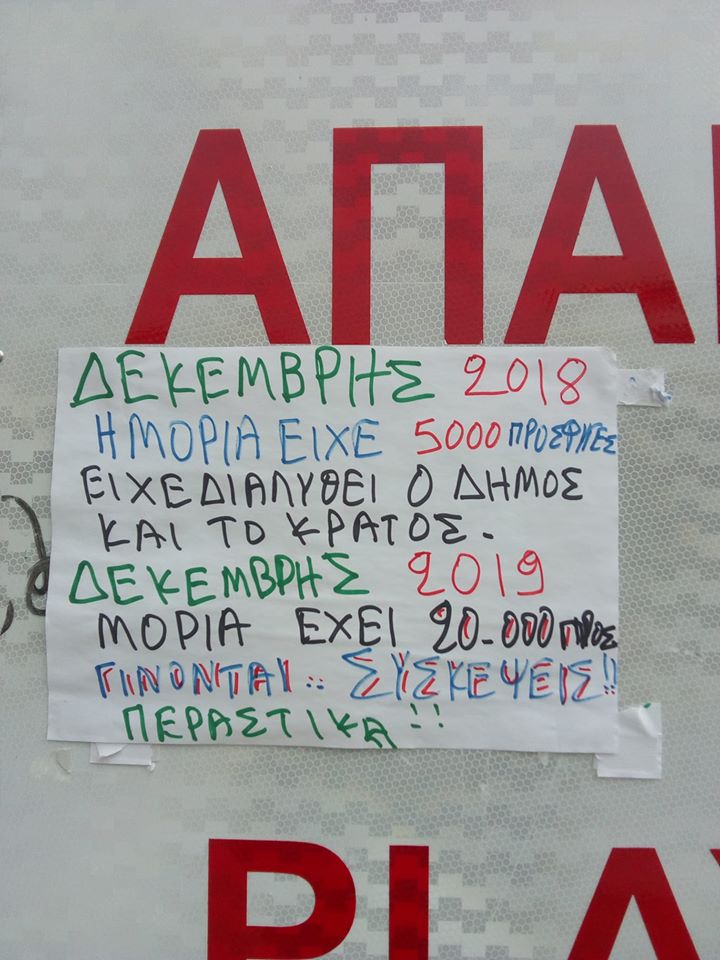 ΑΠΑ
ΔΕΚΕΜΒΡΗΣ 2018
Η ΜΟΡΙΑ ΕΙΧΕ 5000 ΠΡΟΣΦΥΓΕΣ
ΕΙΧΕ ΔΙΑΛΥΘΕΙ Ο ΔΗΜΟΣ
ΚΑΙ ΤΟ ΚΡΑΤΟΣ.
ΔΕΚΕΜΒΡΗΣ 2019
ΜΟΡΙΑ ΕΧΕΙ 20.000 ΠΡΟΣ
ΓΙΝΟΝΤΑΙ.. ΣΥΣΚΕΨΕΙΣ!!
ΠΕΡΑΣΤΙΚΑ!!
PLAY